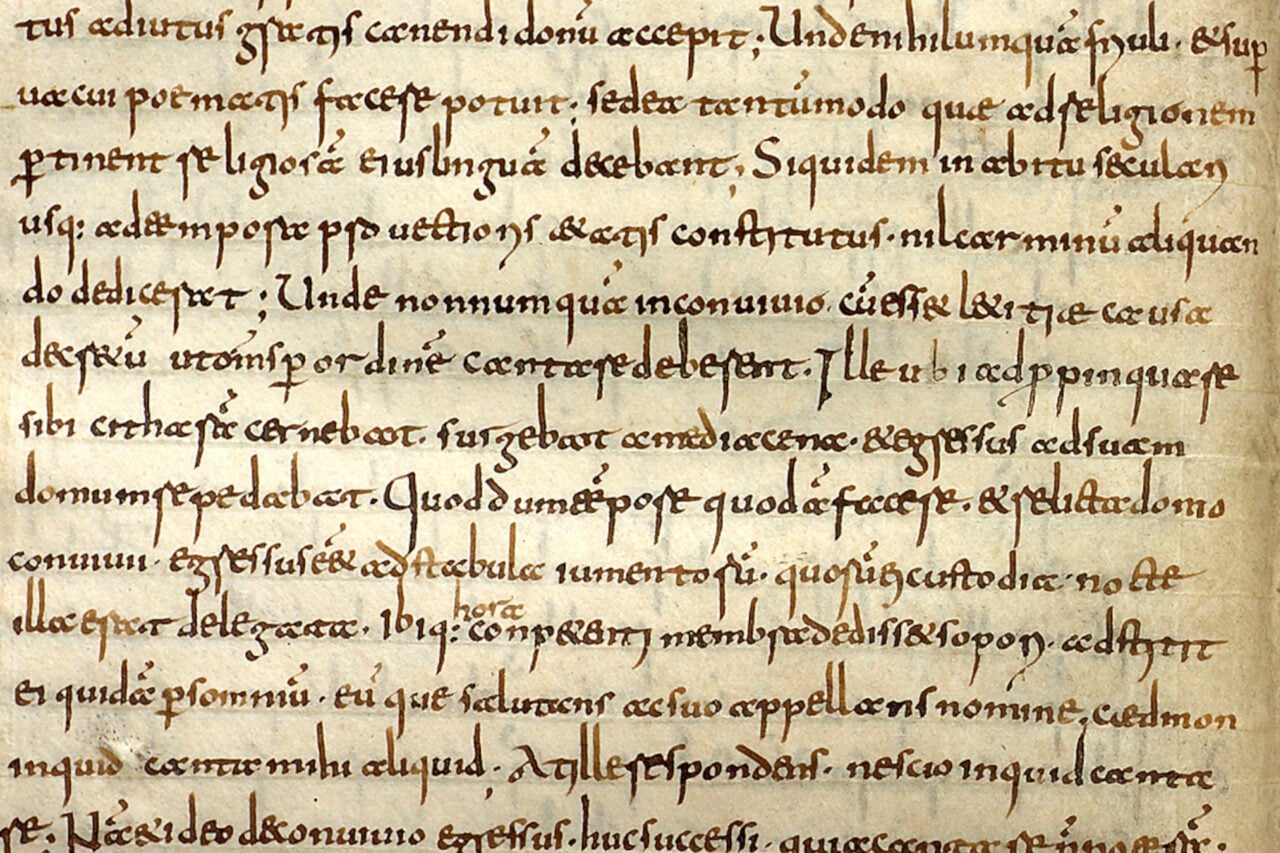 tus adiutus gratis canendi donū accepit; Unde nihil umquā friuli· & suꝑ
uacui poematis facere potuit· sed ea tantūmodo quae ad religionem
ꝑtinent religiosā eius linguā decebant; Siquidem in abitu seculari
usq: ad tempora prouectioris &atis constitutus· nil carminū aliquan
do dedicerat; Unde nonnumquā in conuiuio· cū ess& l&itiae causa
decr&ū ut om̄s ꝑ ordinē cantare deberent· Ille ubi adꝓpinquare
sibi citharā cernebat· surgebat a media cena· & egressus ad suam
domum repedabat· Quod dum tēpore quodā facere· & relicta domo
conuiuii· egressus ē& ad stabula iumentorū· quorū ei custodia nocte
illa erat delegata· Ibiq: hora conp&enti membra dediss& sopori· adstitit
ei quidā ꝑ somniū· eūque salutans ac suo appellans nomine; caedmon
inquid canta mihi aliquid· At ille respondens· nescio inquid canta
re· Nā & ideo de conuiuio egressus· huc successi· quia cantare n̄ poterā·